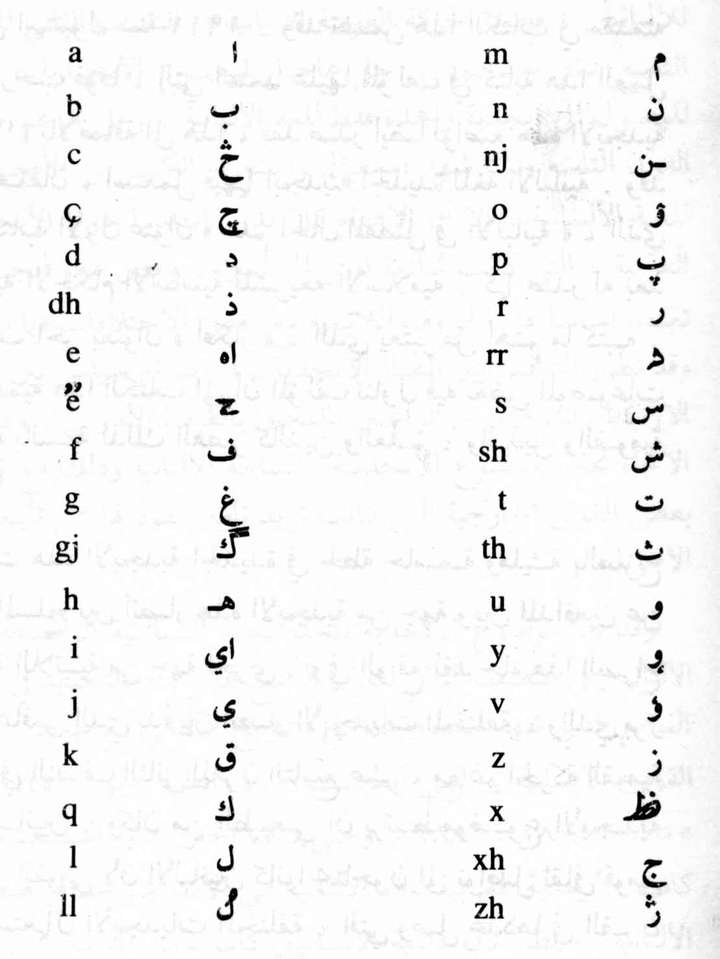 a ا
b ب
c څ
ç چ
d د
dh ذ
e اه
ë ح
f ف
g غ
gj گ
h هـ
i اي
j ي
k ق
q ك
l ل
ll
m م
n ن
nj ـن
o ۆ
p پ
r ر
rr
s س
sh ش
t ت
th ث
u و
y
v ؤ
z ز
x ظ
xh ج
zh ژ